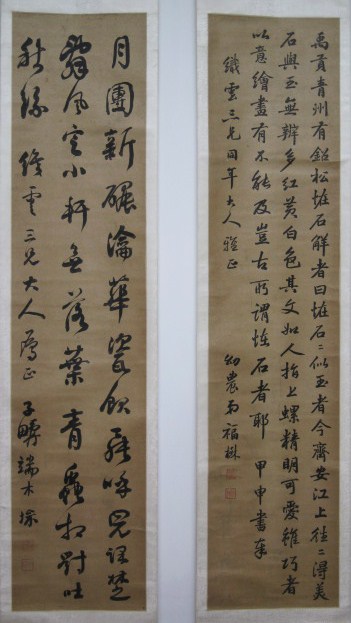 禹貢青州有鉛松怪石解者曰怪石〻似玉者今齊安江上往〻得美
石與玉無辨多紅黃白色其文如人指上螺精明可愛雖巧者
以意繪畫有不能及豈古所謂怪石者耶 甲申書奉
織雲三兄同年大人雅正
幼農弟福楙
月團新碾瀹華瓷飲罷呼兒課楚
辭風定小軒無落葉青蟲相對吐
秋絲 織雲三兄大人屬正 子疇端木埰